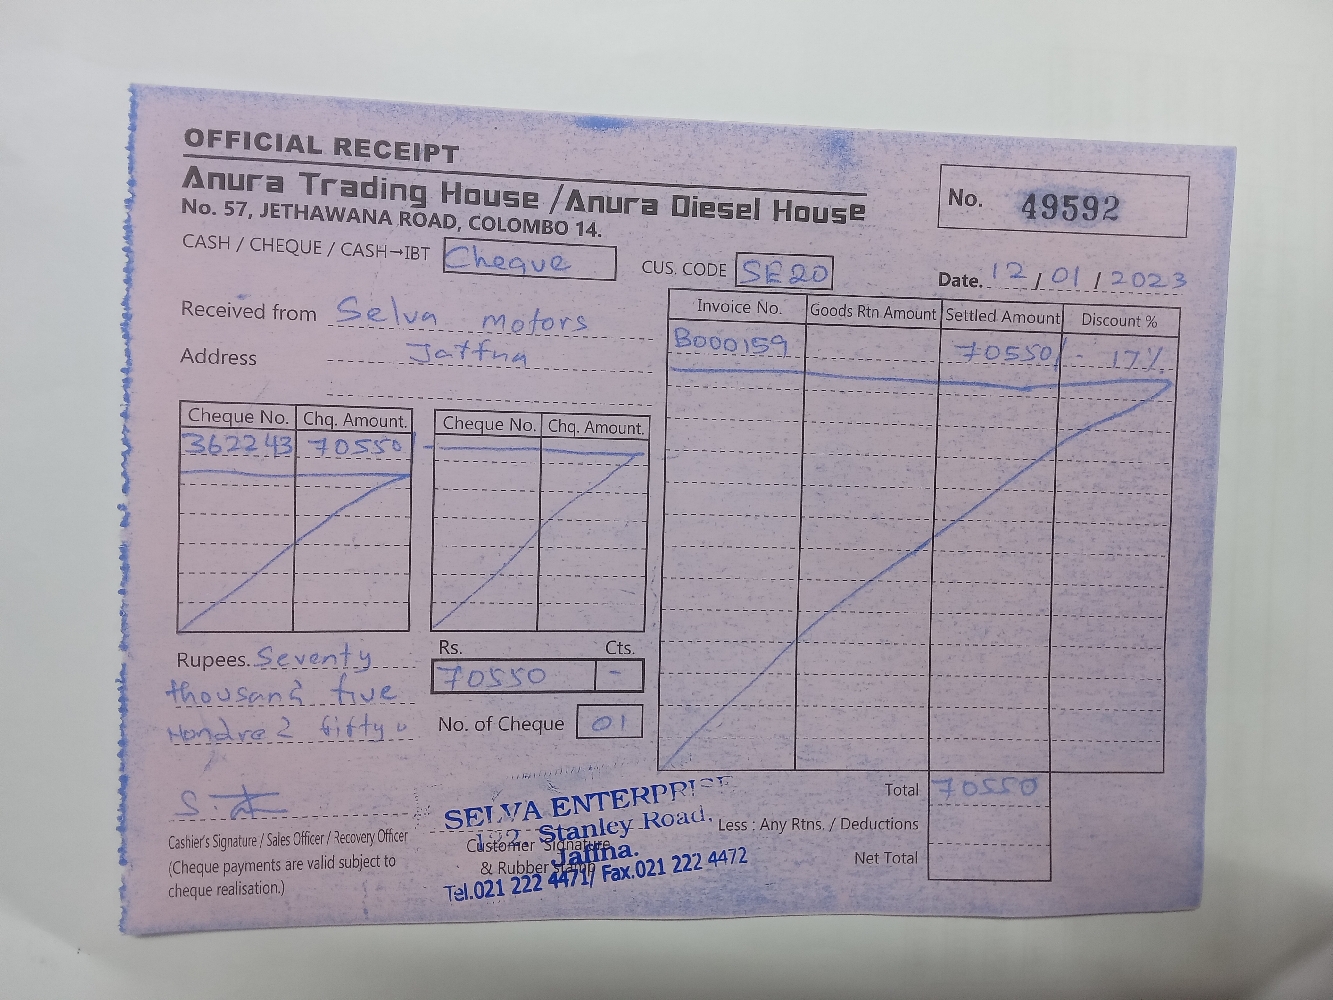 OFFICIAL RECEIPT
Anura Trading House /Anura Diesel House
No. 57, JETHAWANA ROAD, COLOMBO 14.
No. 49592
CASH / CHEQUE / CASH→IBT Cheque
CUS. CODE SE20
Date. 12 / 01 / 2023
Received from Selva motors
Address Jaffna
Invoice No. Goods Rtn Amount Settled Amount Discount %
B000159 70550/- 17%
Cheque No. Chq. Amount. Cheque No. Chq. Amount.
362243 70550/-
Rupees. Seventy
thousand five
Hondred fifty
Rs. Cts.
70550 -
No. of Cheque 01
Total 70550
Less : Any Rtns. / Deductions
Net Total
Cashier's Signature / Sales Officer / Recovery Officer
(Cheque payments are valid subject to
cheque realisation.)
Customer Signature
& Rubber Stamp
SELVA ENTERPRISE
Stanley Road,
Jaffna.
Tel.021 222 4471/ Fax.021 222 4472